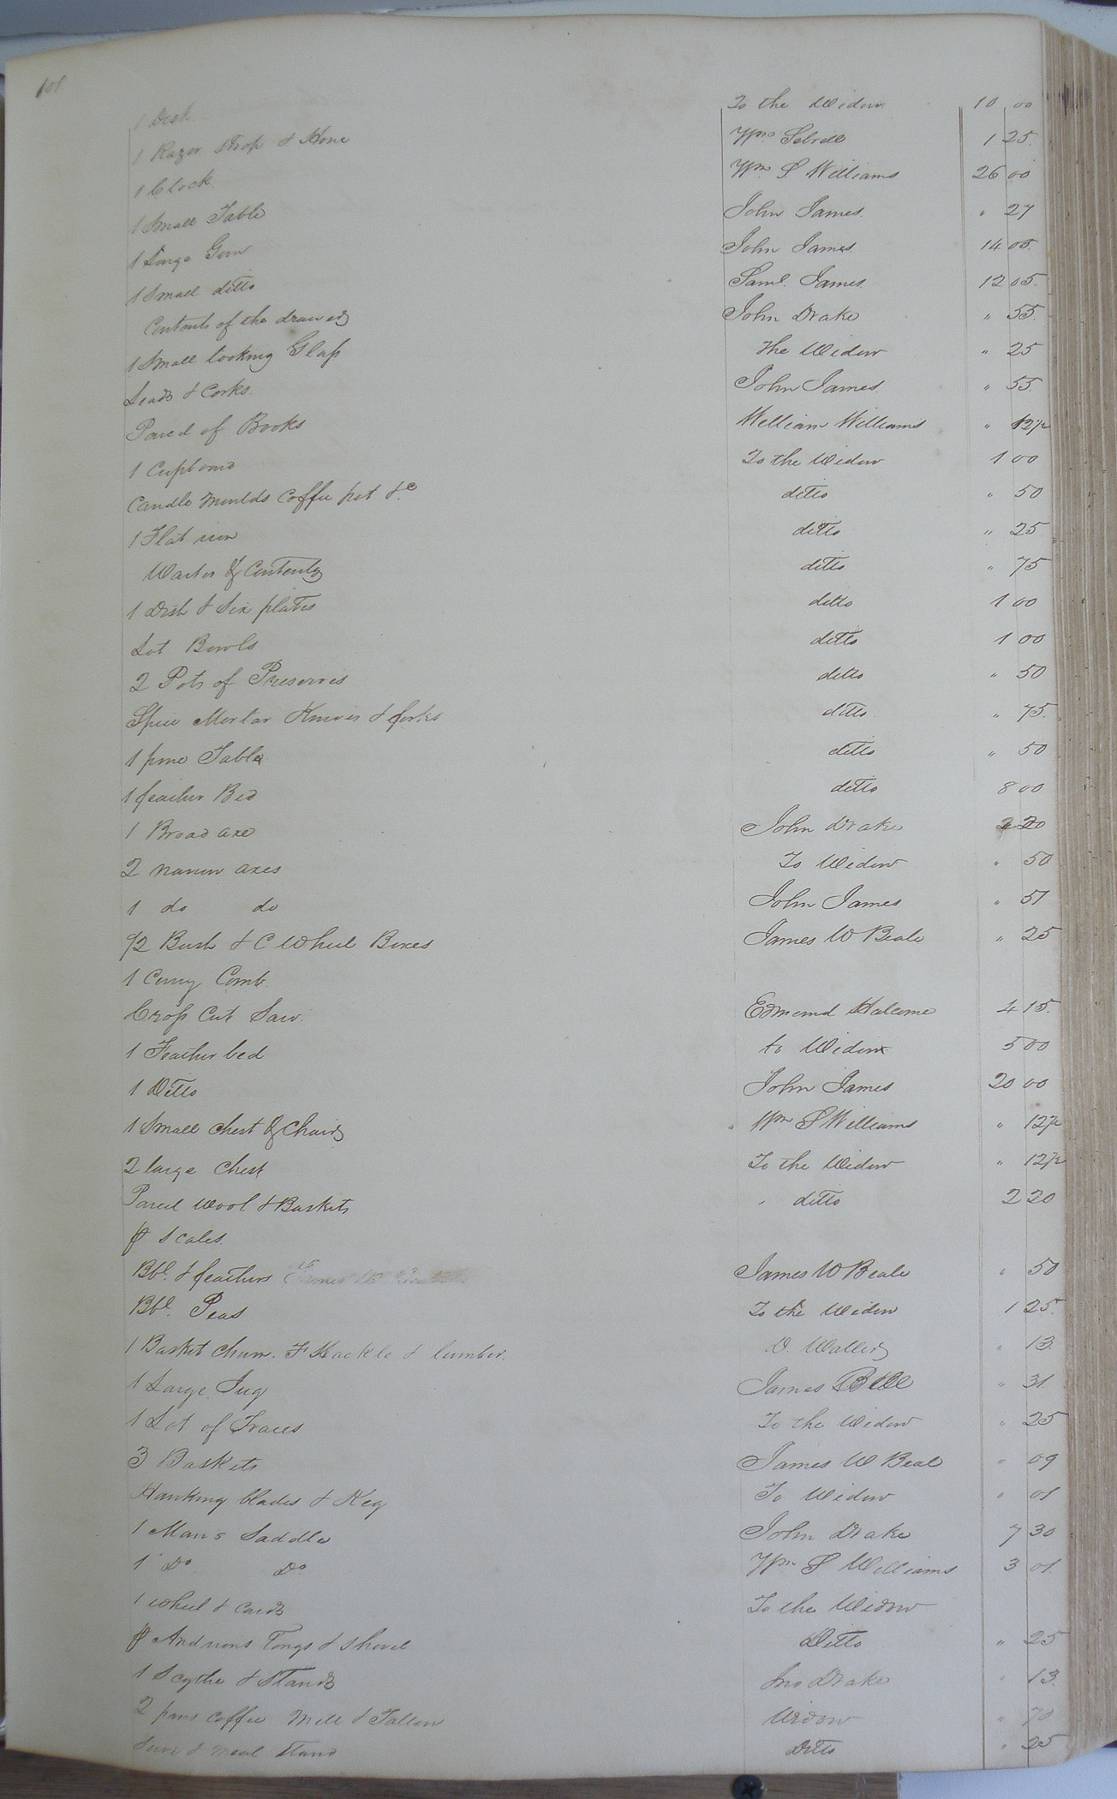 101
1 Desk To the Widow 10 00
1 Razor Strop & Hone Wm 1 25
1 Clock Wm S Williams 26 00
1 Small Table John James " 27
1 Large Gun John James 14 05
1 Small ditto Saml. James 12 05
Contents of the drawers John Drake " 55
1 Small looking Glass the Widow " 25
Leads & Corks John James " 55
Parcel of Books William Williams " 12½
1 Cupboard To the Widow 1 00
Candle Moulds Coffee pot &c ditto " 50
1 Flat iron ditto " 25
Waiter & Contents ditto " 75
1 Dish & Six plates ditto 1 00
Lot Bowls ditto 1 00
2 Pots of Preserves ditto " 50
Spice Mortar Knives & forks ditto " 75
1 pine Table ditto " 50
1 feather Bed ditto 8 00
1 Broad axe John Drake 2 20
2 narrow axes To Widow " 50
1 do do John James " 51
½ Bush & C Wheel Boxes James W Beale " 25
1 Curry Comb
Cross Cut Saw Edmond 4 15
1 Feather bed to Widow 5 00
1 Ditto John James 20 00
1 Small chest & Chairs Wm S Williams " 12½
2 large Chest To the Widow " 12½
Parcel Wool & Baskets " ditto 2 20
pr Scales
Bbl. & feathers James W Beale " 50
Bbl. Peas To the Widow 1 25
1 Basket Churn. F Hackle & lumber. D. Wallers " 13
1 Large Jug James Bell " 31
1 Lot of Traces To the Widow " 25
3 Baskets James W Beal " 09
Hanking blades & Keg To Widow " 01
1 Man's Saddle John Drake 7 30
1 Do Do Wm S Williams 3 01
1 wheel & Cards To the Widow
pr Andirons Tongs & shovel Ditto " 25
1 Scythe & Stands Jno Drake " 13
2 pans coffee Mill & Tallow Widow " 70
& meal stand Ditto " 25